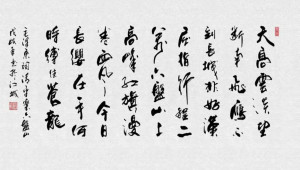 天高雲淡望
斷南飛雁不
到長城非好漢
屈指行程二
萬六盤山上
高峰紅旗漫
卷西風今日
長纓在手何
時縛住蒼龍
毛澤東詞清平樂六盤山
戊戌於江城